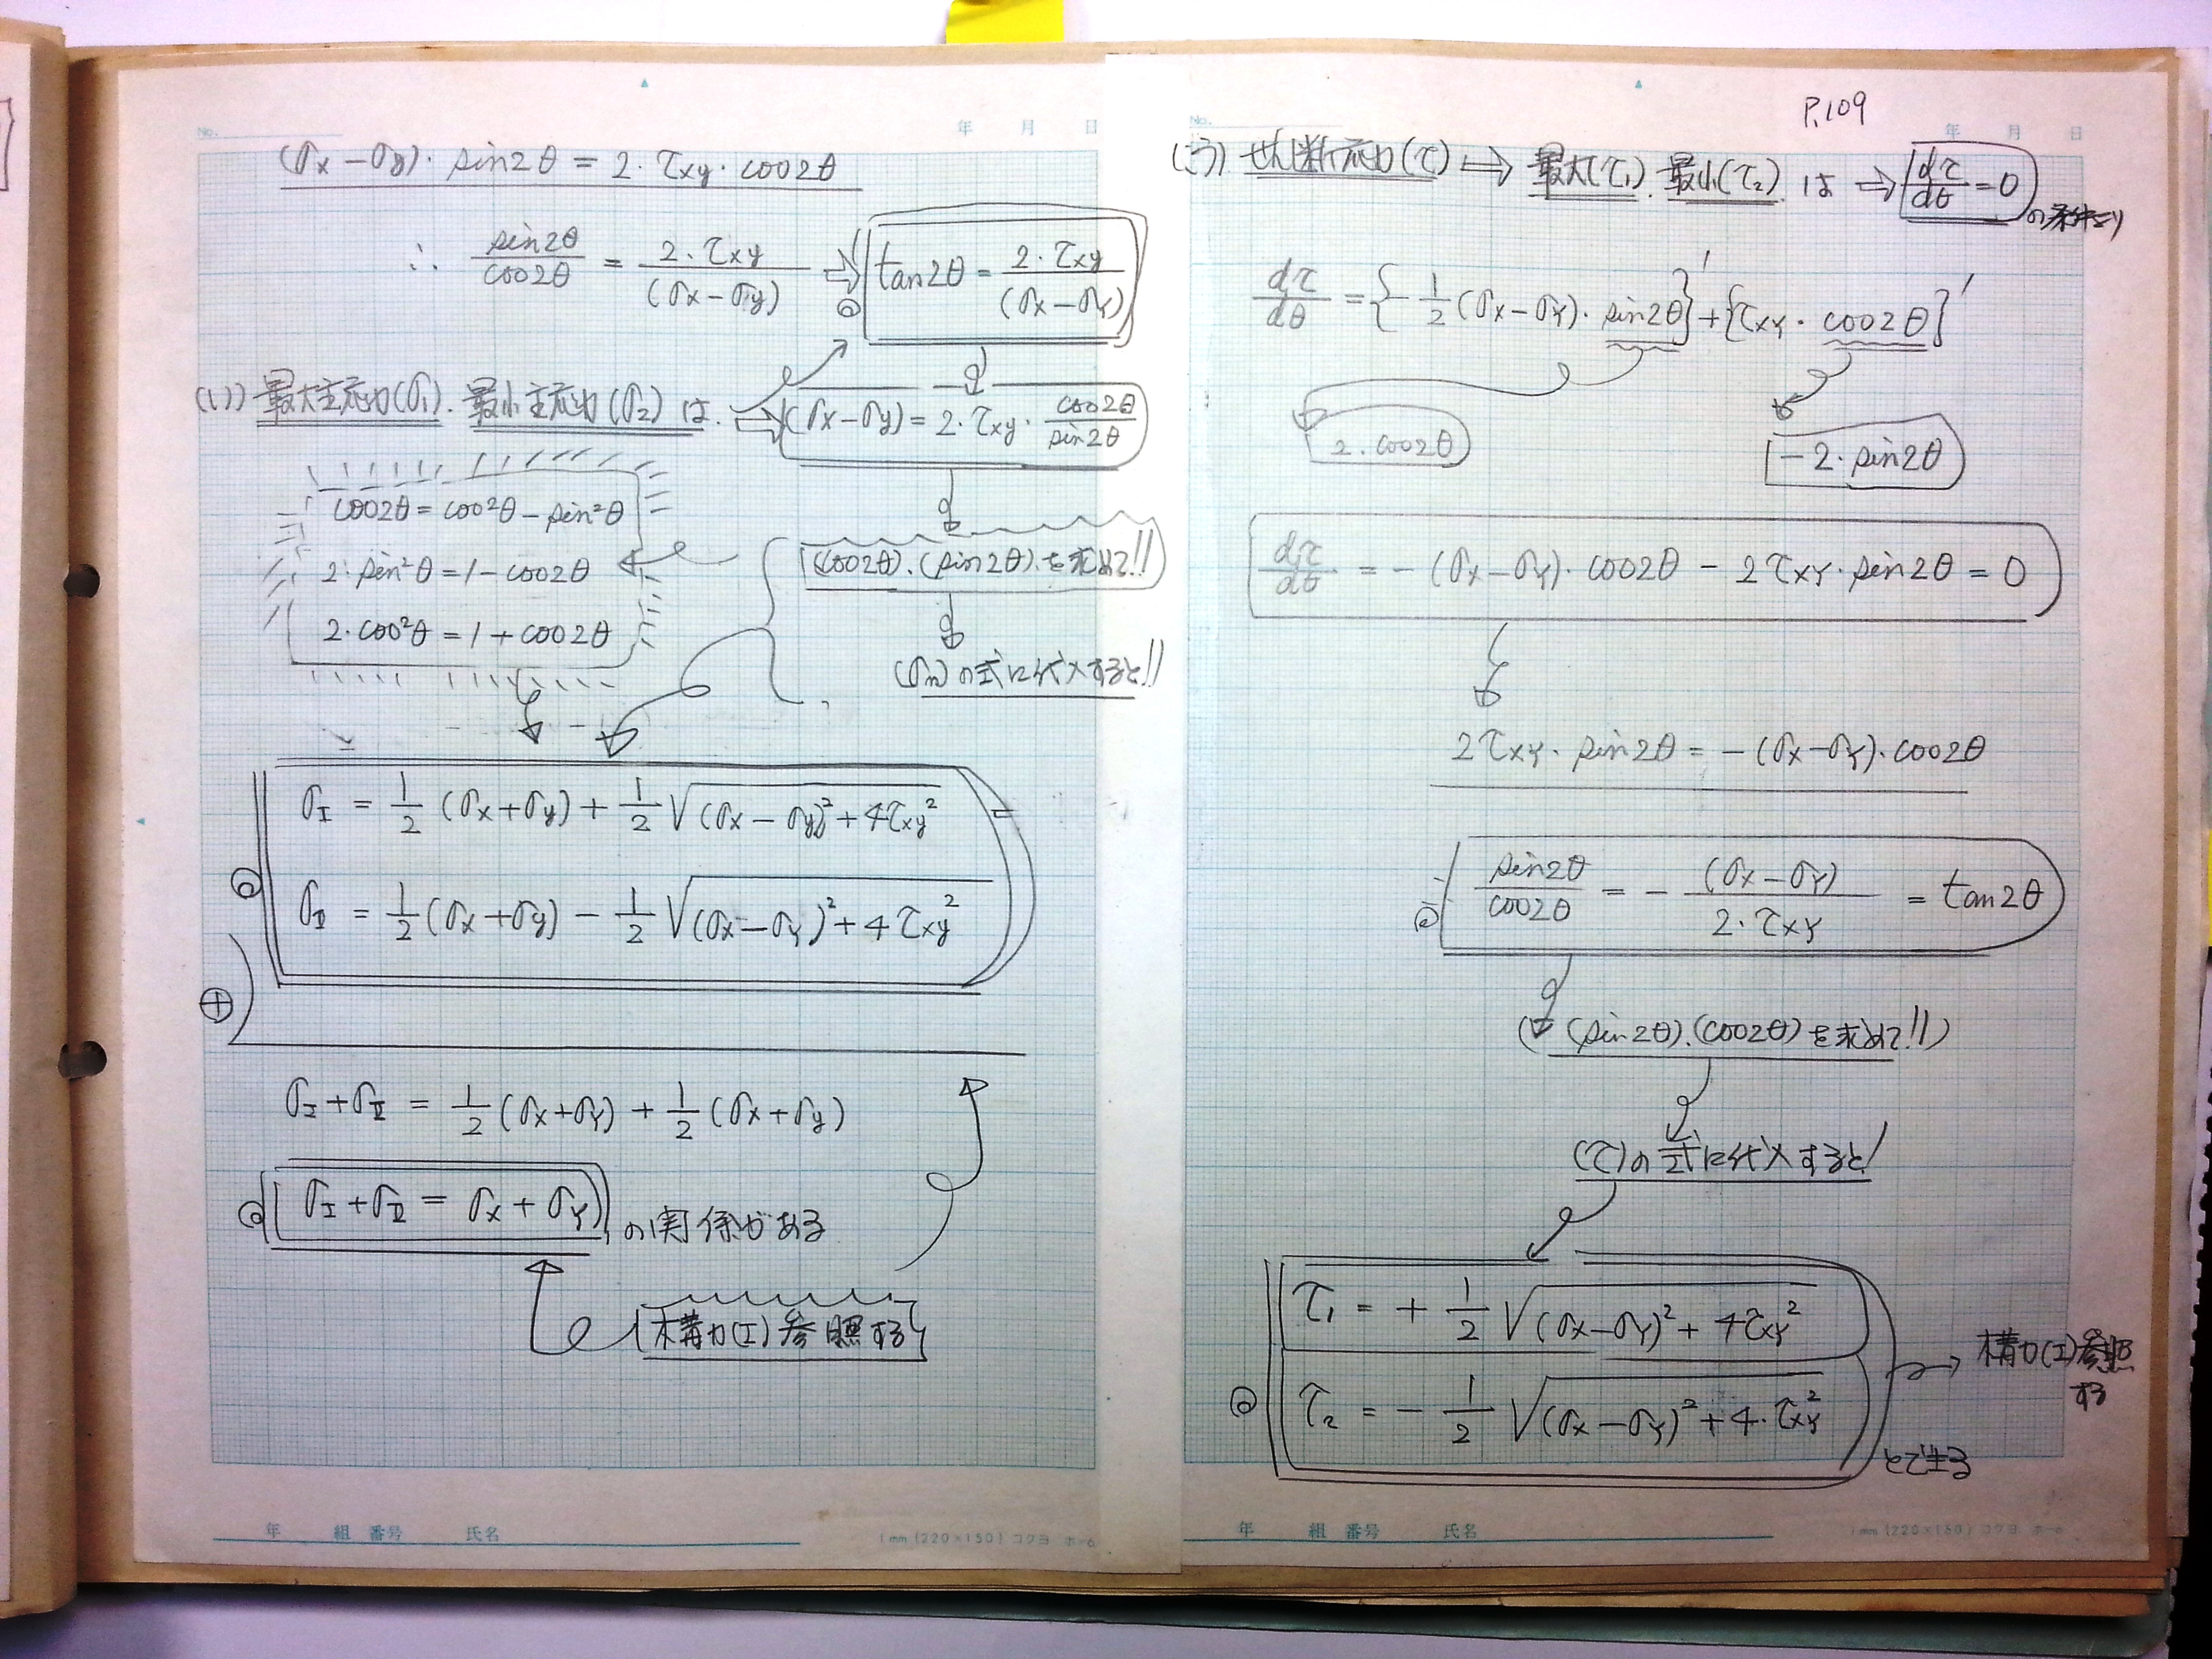 No. 年 月 日
(σx−σy)・sin2θ = 2・τxy・cos2θ
∴ sin2θ/cos2θ = 2・τxy/(σx−σy) ⇨ tan2θ = 2・τxy/(σx−σy)
(い) 最大主応力(σ1). 最小主応力(σ2) は. ⇨ (σx−σy) = 2・τxy・cos2θ/sin2θ
cos2θ = cos²θ − sin²θ
2・sin²θ = 1 − cos2θ
2・cos²θ = 1 + cos2θ
(cos2θ).(sin2θ).を求めて!!
(σn)の式に代入すると!!
σI = 1/2 (σx+σy) + 1/2 √(σx−σy)²+4τxy²
σII = 1/2 (σx+σy) − 1/2 √(σx−σy)²+4τxy²
⊕
σI+σII = 1/2 (σx+σy) + 1/2 (σx+σy)
σI+σII = σx+σy の関係がある
構力(I)参照する
年 組 番号 氏名
1mm (220×150) コクヨ ホ-6
P.109
No. 年 月 日
(ろ) せん断応力(τ) ⇨ 最大(τ1). 最小(τ2). は ⇨ dτ/dθ = 0 の条件より
dτ/dθ = {−1/2 (σx−σy)・sin2θ}′ + {τxy・cos2θ}′
2・cos2θ
−2・sin2θ
dτ/dθ = −(σx−σy)・cos2θ − 2τxy・sin2θ = 0
2τxy・sin2θ = −(σx−σy)・cos2θ
sin2θ/cos2θ = − (σx−σy)/2・τxy = tan2θ
((sin2θ).(cos2θ)を求めて!!)
(τ)の式に代入すると!
τ1 = + 1/2 √(σx−σy)²+4τxy²
τ2 = − 1/2 √(σx−σy)²+4・τxy²
構力(I)参照
する
とできる
年 組 番号 氏名
1mm (220×150) コクヨ ホ-6